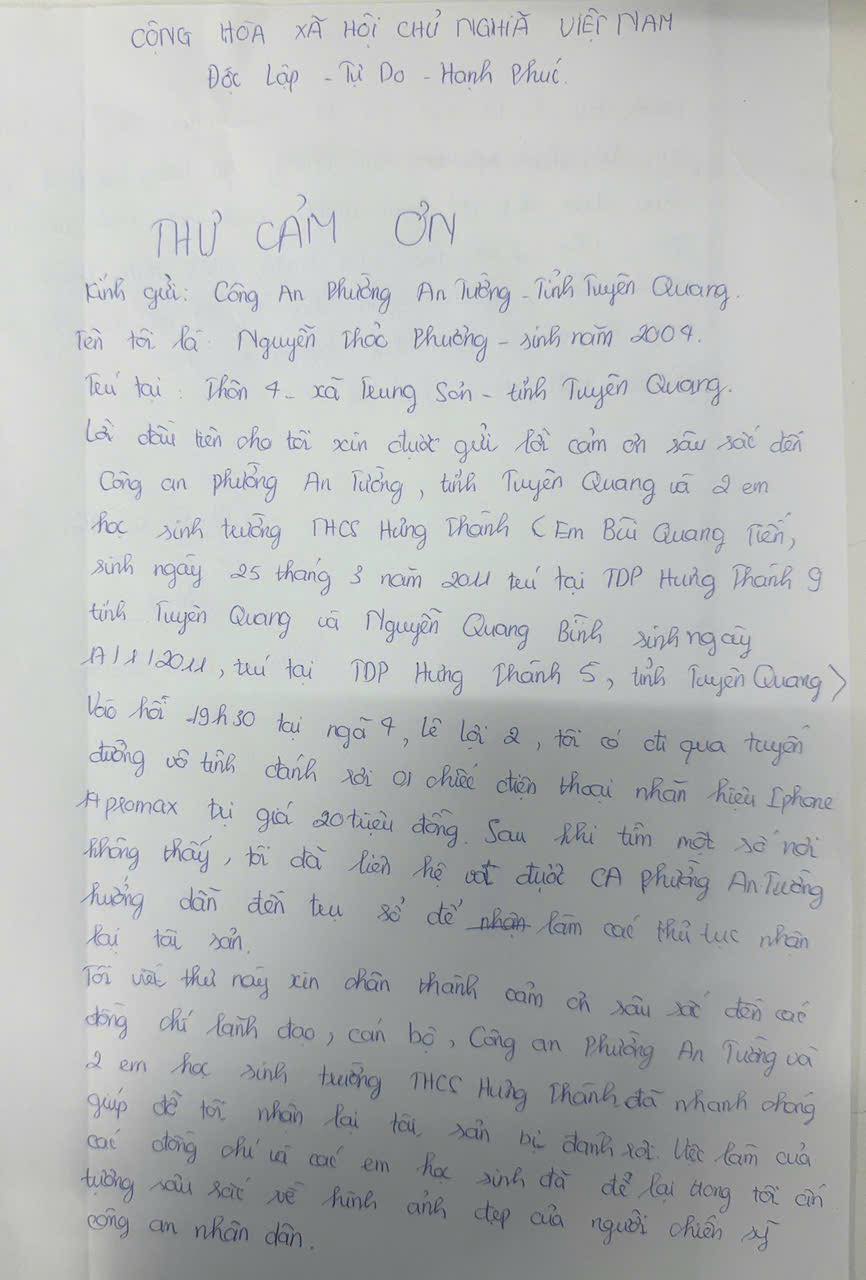 CỘNG HÒA XÃ HỘI CHỦ NGHĨA VIỆT NAM
Độc Lập - Tự Do - Hạnh Phúc.
THƯ CẢM ƠN
Kính gửi: Công An Phường An Tường - Tỉnh Tuyên Quang.
Tên tôi là: Nguyễn Thảo Phương - sinh năm 2004.
Trú tại: Thôn 4 - xã Trung Sơn - tỉnh Tuyên Quang.
Lời đầu tiên cho tôi xin được gửi lời cảm ơn sâu sắc đến
Công an phường An Tường, tỉnh Tuyên Quang và 2 em
học sinh trường THCS Hưng Thành (Em Bùi Quang Tiến,
sinh ngày 25 tháng 3 năm 2011 trú tại TDP Hưng Thành 9
tỉnh Tuyên Quang và Nguyễn Quang Bình sinh ngày
17/1/2011, trú tại TDP Hưng Thành 5, tỉnh Tuyên Quang)
Vào hồi 19h30 tại ngã 4, Lê Lợi 2, tôi có đi qua tuyến
đường vô tình đánh rơi 01 chiếc điện thoại nhãn hiệu Iphone
17 promax trị giá 20 triệu đồng. Sau khi tìm một số nơi
không thấy, tôi đã liên hệ và được CA phường An Tường
hướng dẫn đến trụ sở để nhận làm các thủ tục nhận
lại tài sản.
Tôi viết thư này xin chân thành cảm ơn sâu sắc đến các
đồng chí lãnh đạo, cán bộ, Công an Phường An Tường và
2 em học sinh trường THCS Hưng Thành đã nhanh chóng
giúp đỡ tôi nhận lại tài sản bị đánh rơi. Việc làm của
các đồng chí và các em học sinh đã để lại trong tôi ấn
tượng sâu sắc về hình ảnh đẹp của người chiến sỹ
công an nhân dân.